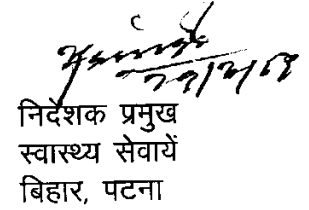 निदेशक प्रमुख
स्वास्थ्य सेवायें
बिहार, पटना